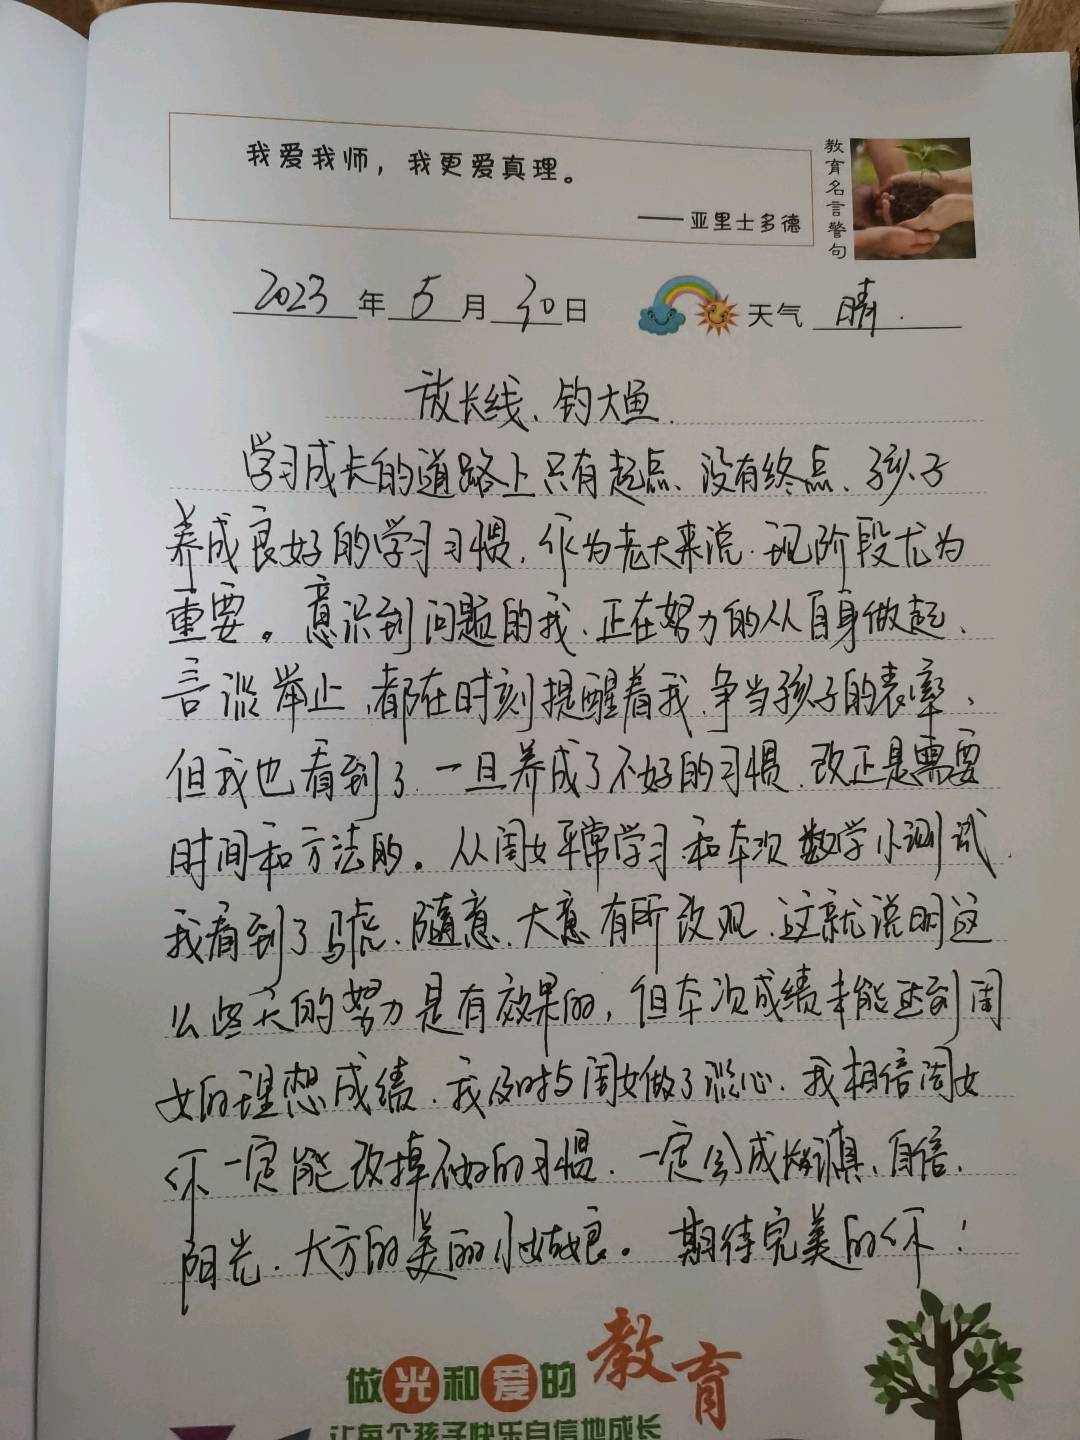 我爱我师，我更爱真理。
——亚里士多德
教育名言警句
2023年5月30日 天气 晴.
放长线、钓大鱼.
学习成长的道路上只有起点、没有终点、孩子
养成良好的学习习惯，作为老大来说.现阶段尤为
重要。意识到问题的我、正在努力的从自身做起、
言谈举止、都在时刻提醒着我、争当孩子的表率、
但我也看到了.一旦养成了不好的习惯.改正是需要
时间和方法的。从闺女平常学习和本次数学小测试.
我看到了马虎、随意、大意有所改观.这就说明这
么些天的努力是有效果的，但本次成绩未能达到闺
女的理想成绩.我及时与闺女做了谈心.我相信闺女
你一定能改掉不好的习惯.一定会成长谦、自信、
阳光.大方的美丽小姑娘。期待完美的你！
做光和爱的教育
让每个孩子快乐自信地成长